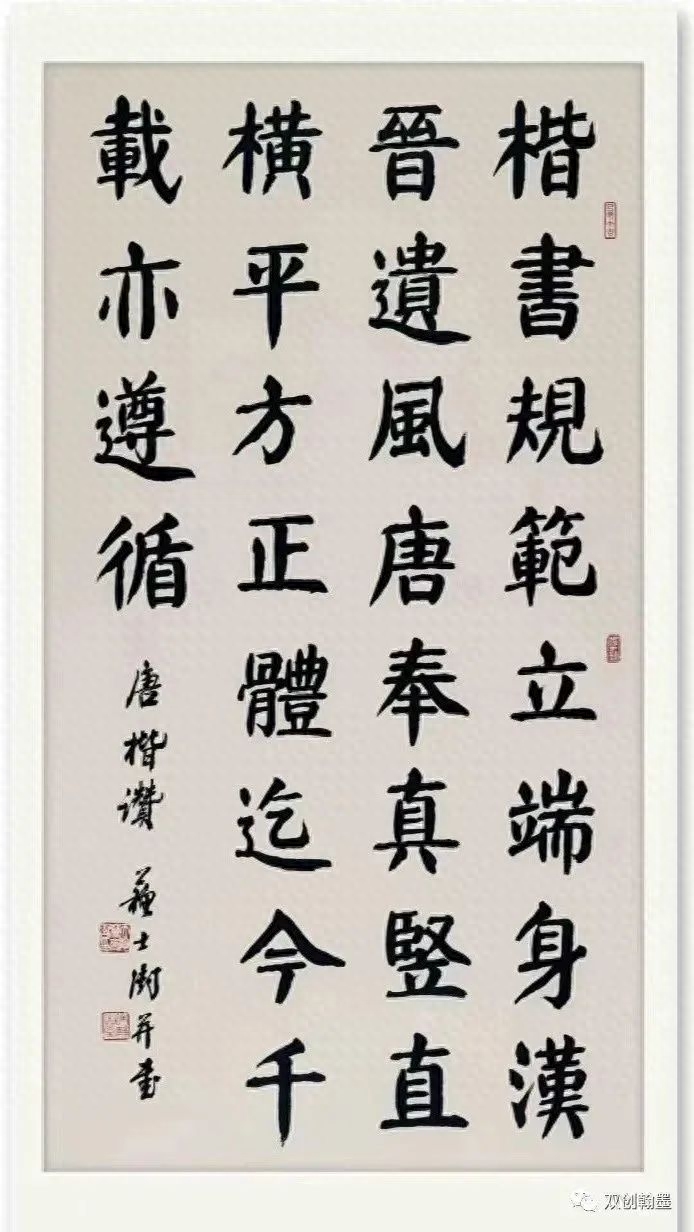 楷書規範立端身漢
晉遺風唐奉真竪直
横平方正體迄今千
載亦遵循
唐楷讚 蘇士澍并書
双创翰墨